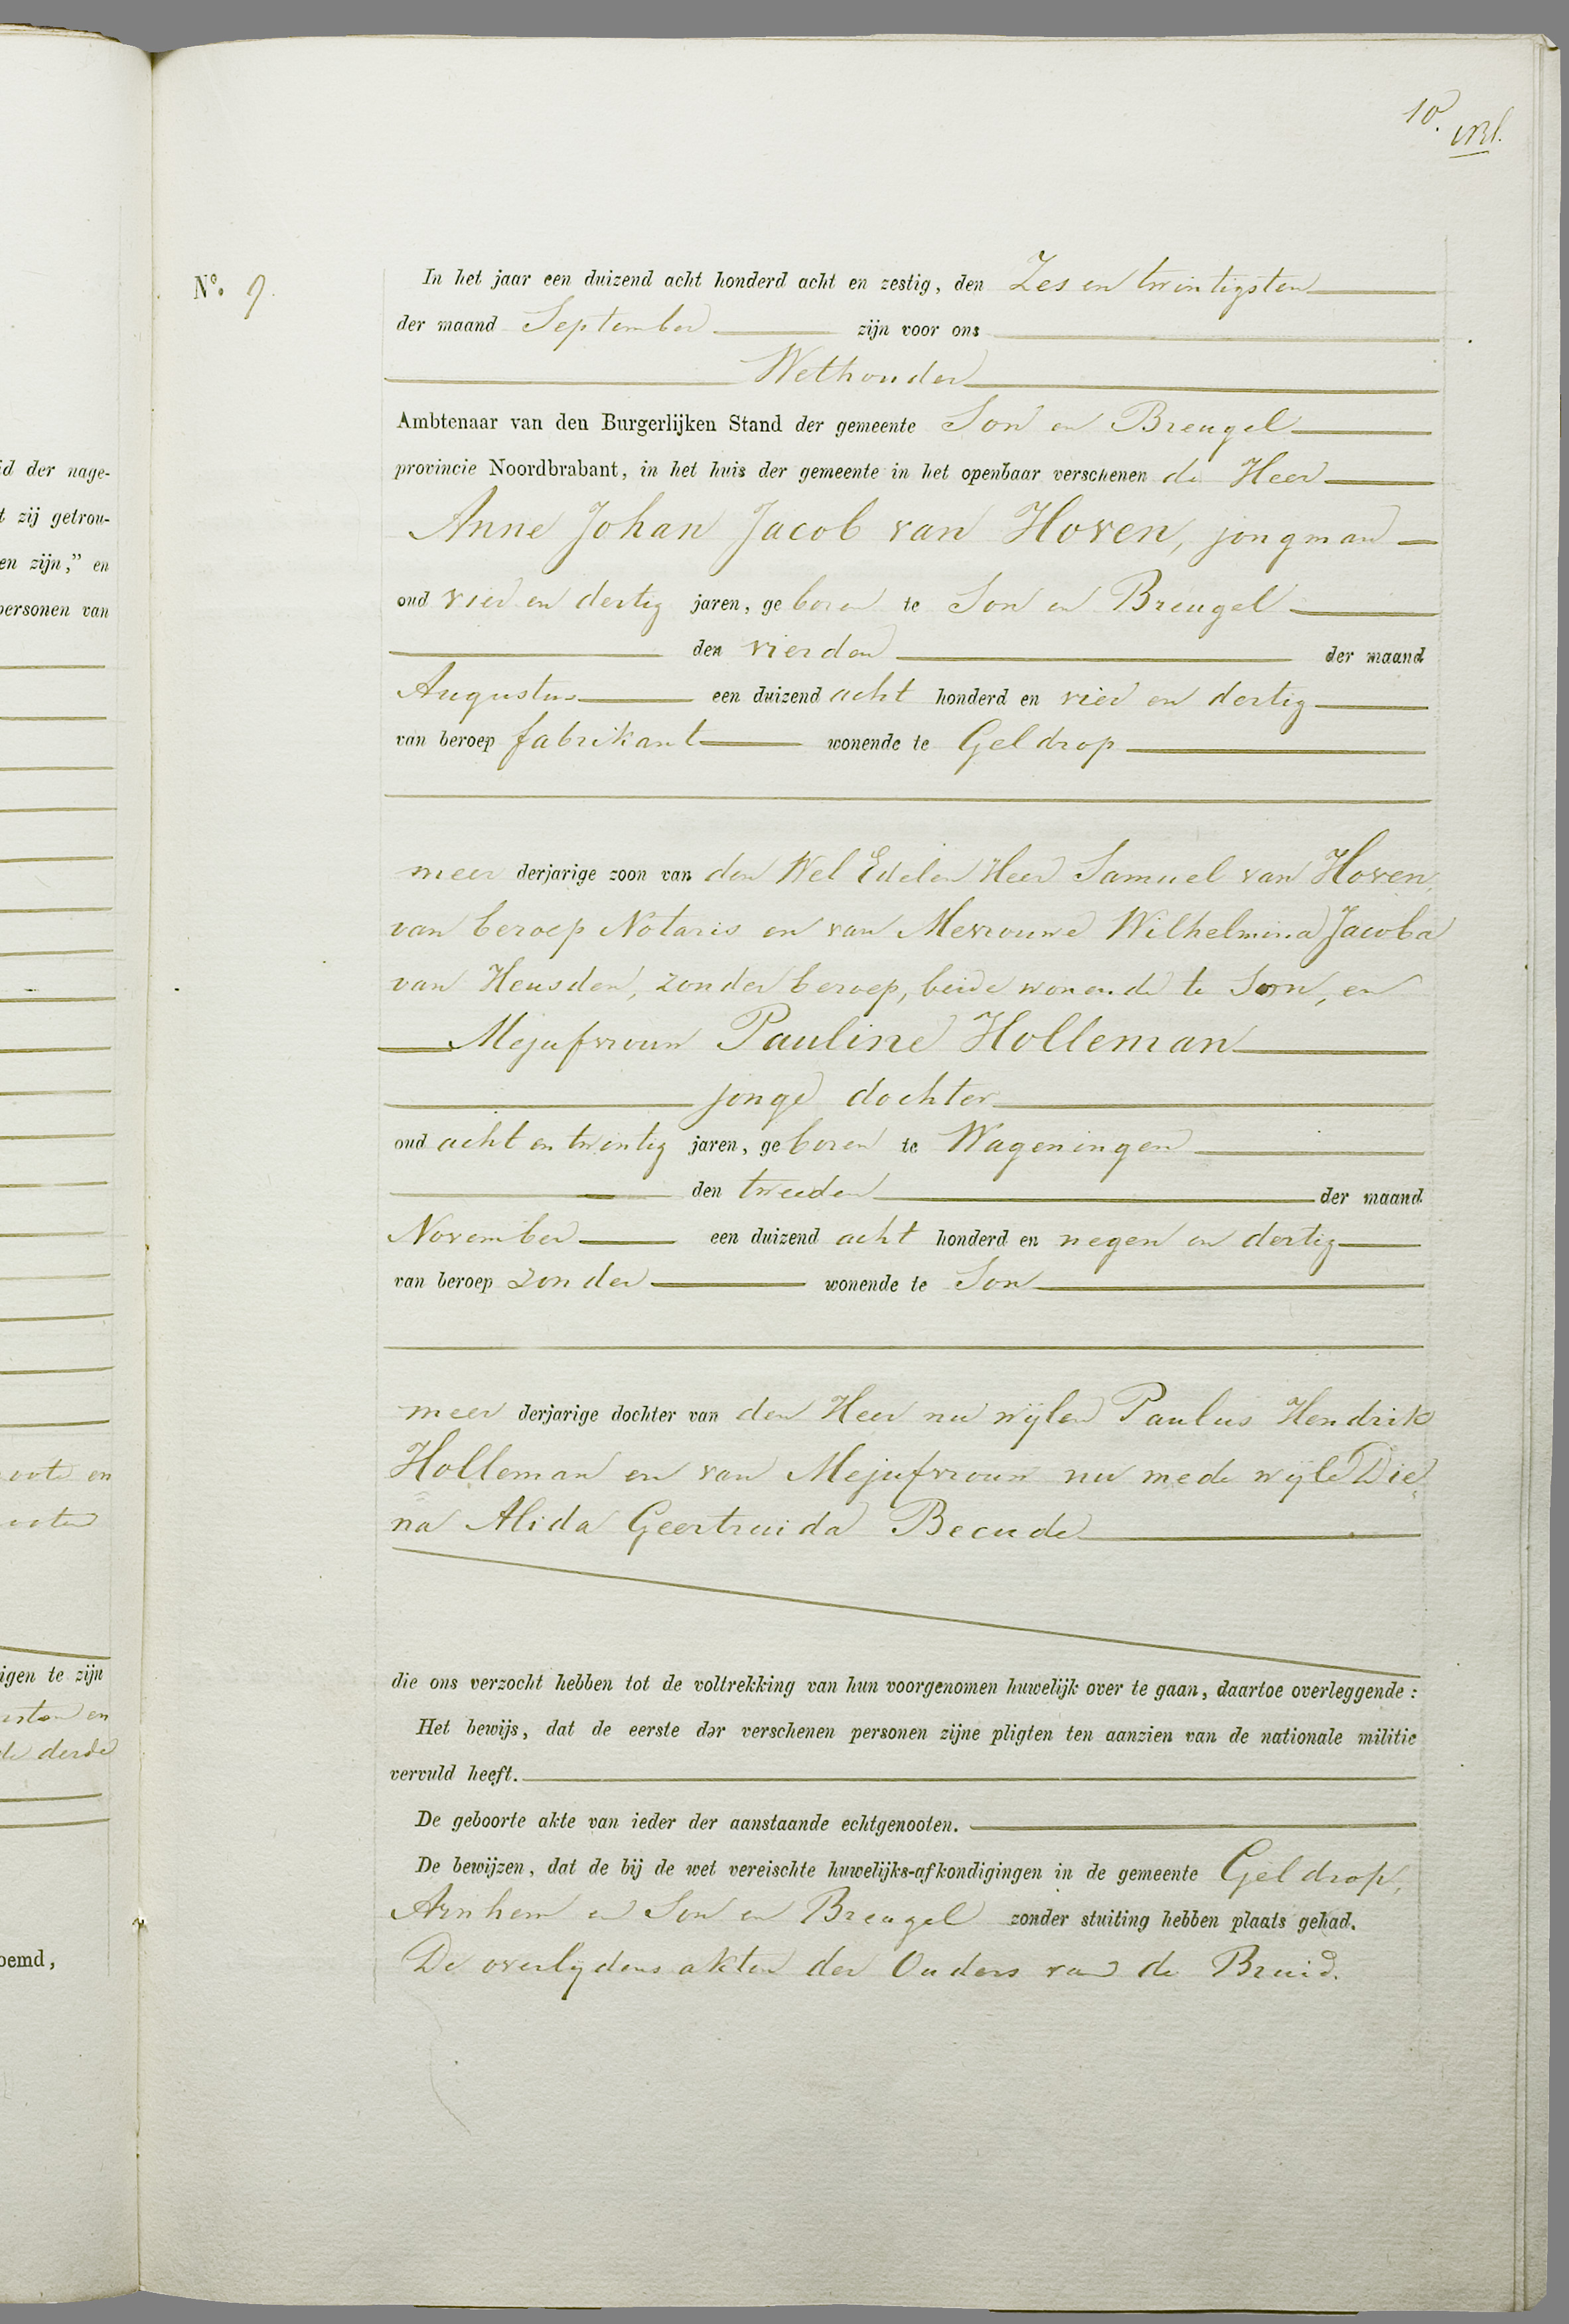 10.
N°. 9.
In het jaar een duizend acht honderd acht en zestig, den Zes en twintigsten
der maand September zijn voor ons
Wethouder
Ambtenaar van den Burgerlijken Stand der gemeente Son en Breugel
provincie Noordbrabant, in het huis der gemeente in het openbaar verschenen de Heer
Anne Johan Jacob van Hoven, jongman
oud vier en dertig jaren, geboren te Son en Breugel
den vierden der maand
Augustus een duizend acht honderd en vier en dertig
van beroep fabrikant wonende te Geldrop
meerderjarige zoon van den Wel Edelen Heer Samuel van Hoven,
van beroep Notaris en van Mevrouwe Wilhelmina Jacoba
van Heusden, zonder beroep, beide wonende te Son, en
Mejufvrouw Pauline Holleman
jonge dochter
oud acht en twintig jaren, geboren te Wageningen
den tweeden der maand
November een duizend acht honderd en negen en dertig
van beroep zonder wonende te Son
meerderjarige dochter van den Heer nu wijlen Paulus Hendrik
Holleman en van Mejufvrouw nu mede wijle Die
na Alida Geertruida Becude
die ons verzocht hebben tot de voltrekking van hun voorgenomen huwelijk over te gaan, daartoe overleggende:
Het bewijs, dat de eerste der verschenen personen zijne pligten ten aanzien van de nationale militie
vervuld heeft.
De geboorte akte van ieder der aanstaande echtgenooten.
De bewijzen, dat de bij de wet vereischte huwelijks-afkondigingen in de gemeente Geldrop,
Arnhem en Son en Breugel zonder stuiting hebben plaats gehad.
De overlijdens akten der Ouders van de Bruid.
id der nage-
t zij getrou-
en zijn,” en
personen van
igen te zijn
de derde
oemd,